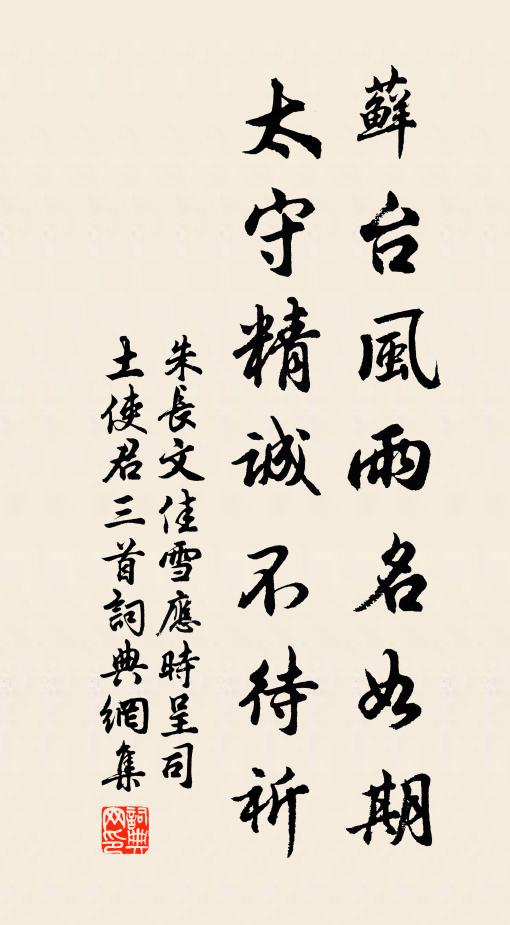 蘚台風雨名如期
太守精誠不待祈
朱長文佳雪應時呈司
土使君三首詞典網集
詞典網印